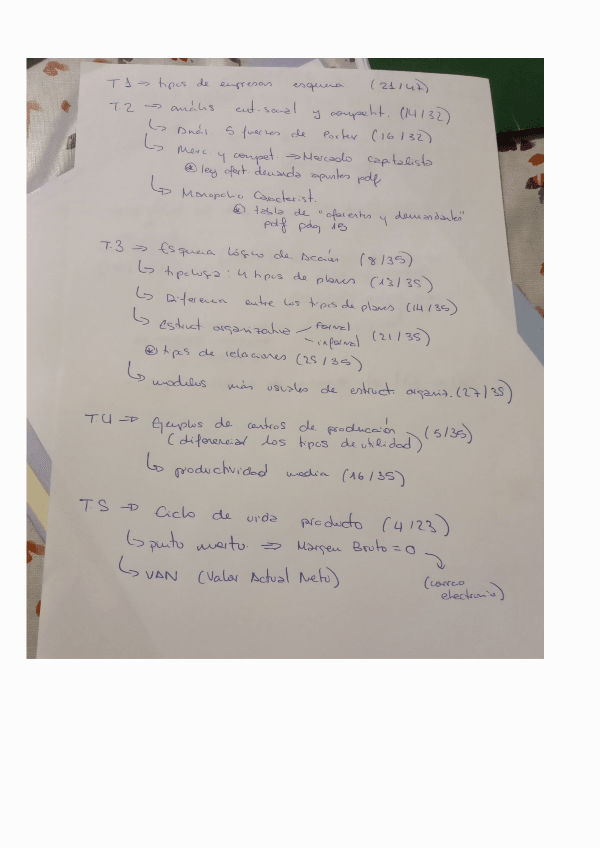 T1 → tipos de empresas esquema (21/47)
T.2 → análisis ent. sonal y compethit. (14/32)
↳ Anál 5 fuerzas de Porter (16/32)
↳ Merc y compet. ⇒ Mercado capitalista
* ley ofert demanda apuntes pdf
↳ Monopolio Caracterist.
* tabla de "oferentes y demandantes"
pdf pág 15
T.3 → Esquema lógico de Acción (8/35)
↳ tipología: 4 tipos de planes (13/35)
↳ Diferencia entre los tipos de planes (14/35)
↳ estruct organizativa formal
informal (21/35)
* tipos de relaciones (25/35)
↳ modelos más usuales de estruct. organiz. (27/35)
T4 ⇒ Ejemplos de centros de producción
(diferencial los tipos de utilidad) (5/35)
↳ productividad media (16/35)
T.5 ⇒ Ciclo de vida producto (4/23)
↳ punto muerto ⇒ Margen Bruto = 0
↳ VAN (Valor Actual Neto)
(correo
electronico)